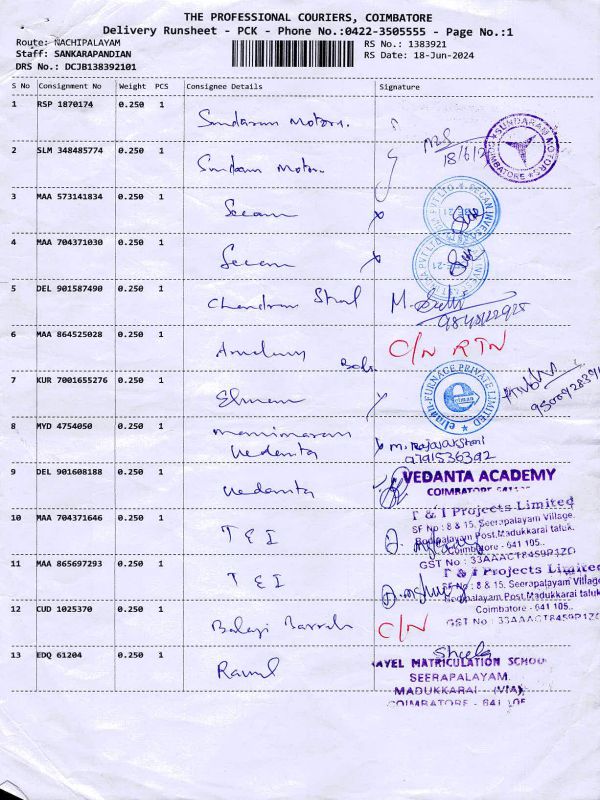 THE PROFESSIONAL COURIERS, COIMBATORE
Delivery Runsheet - PCK - Phone No.:0422-3505555 - Page No.:1
Route: NACHIPALAYAM
RS No.: 1383921
Staff: SANKARAPANDIAN
RS Date: 18-Jun-2024
DRS No.: DCJB138392101
S No Consignment No Weight PCS Consignee Details Signature
1 RSP 1870174 0.250 1 Sundaram Motors.
SUNDARAM MOTORS COIMBATORE
18/6/2
2 SLM 348485774 0.250 1 Sundaram Motors.
3 MAA 573141834 0.250 1 Secan
4 MAA 704371030 0.250 1 Secan
5 DEL 901587490 0.250 1 Chandran Steel
6 MAA 864525028 0.250 1
C/N RTN
7 KUR 7001655276 0.250 1 Elman
elman FURNACE PRIVATE LIMITED
8 MYD 4754050 0.250 1
Vedanta
M. Rajarakshani
9791536392
9 DEL 901608188 0.250 1 Vedanta
VEDANTA ACADEMY
COIMBATORE
10 MAA 704371646 0.250 1 T & I
T & I Projects Limited
SF No : 8 & 15, Seerapalayam Village,
Bodipalayam Post, Madukkarai taluk.
Coimbatore - 641 105.
GST No : 33AAACT8459P1ZO
11 MAA 865697293 0.250 1 T & I
T & I Projects Limited
SF No : 8 & 15, Seerapalayam Village
Bodipalayam Post, Madukkarai taluk
Coimbatore - 641 105.
GST No : 33AAACT8459P1
12 CUD 1025370 0.250 1 Balaji
C/N
13 EDQ 61204 0.250 1
Sheela
AYEL MATRICULATION SCHOO
SEERAPALAYAM,
MADUKKARAI - (VIA)
COIMBATORE - 641 105